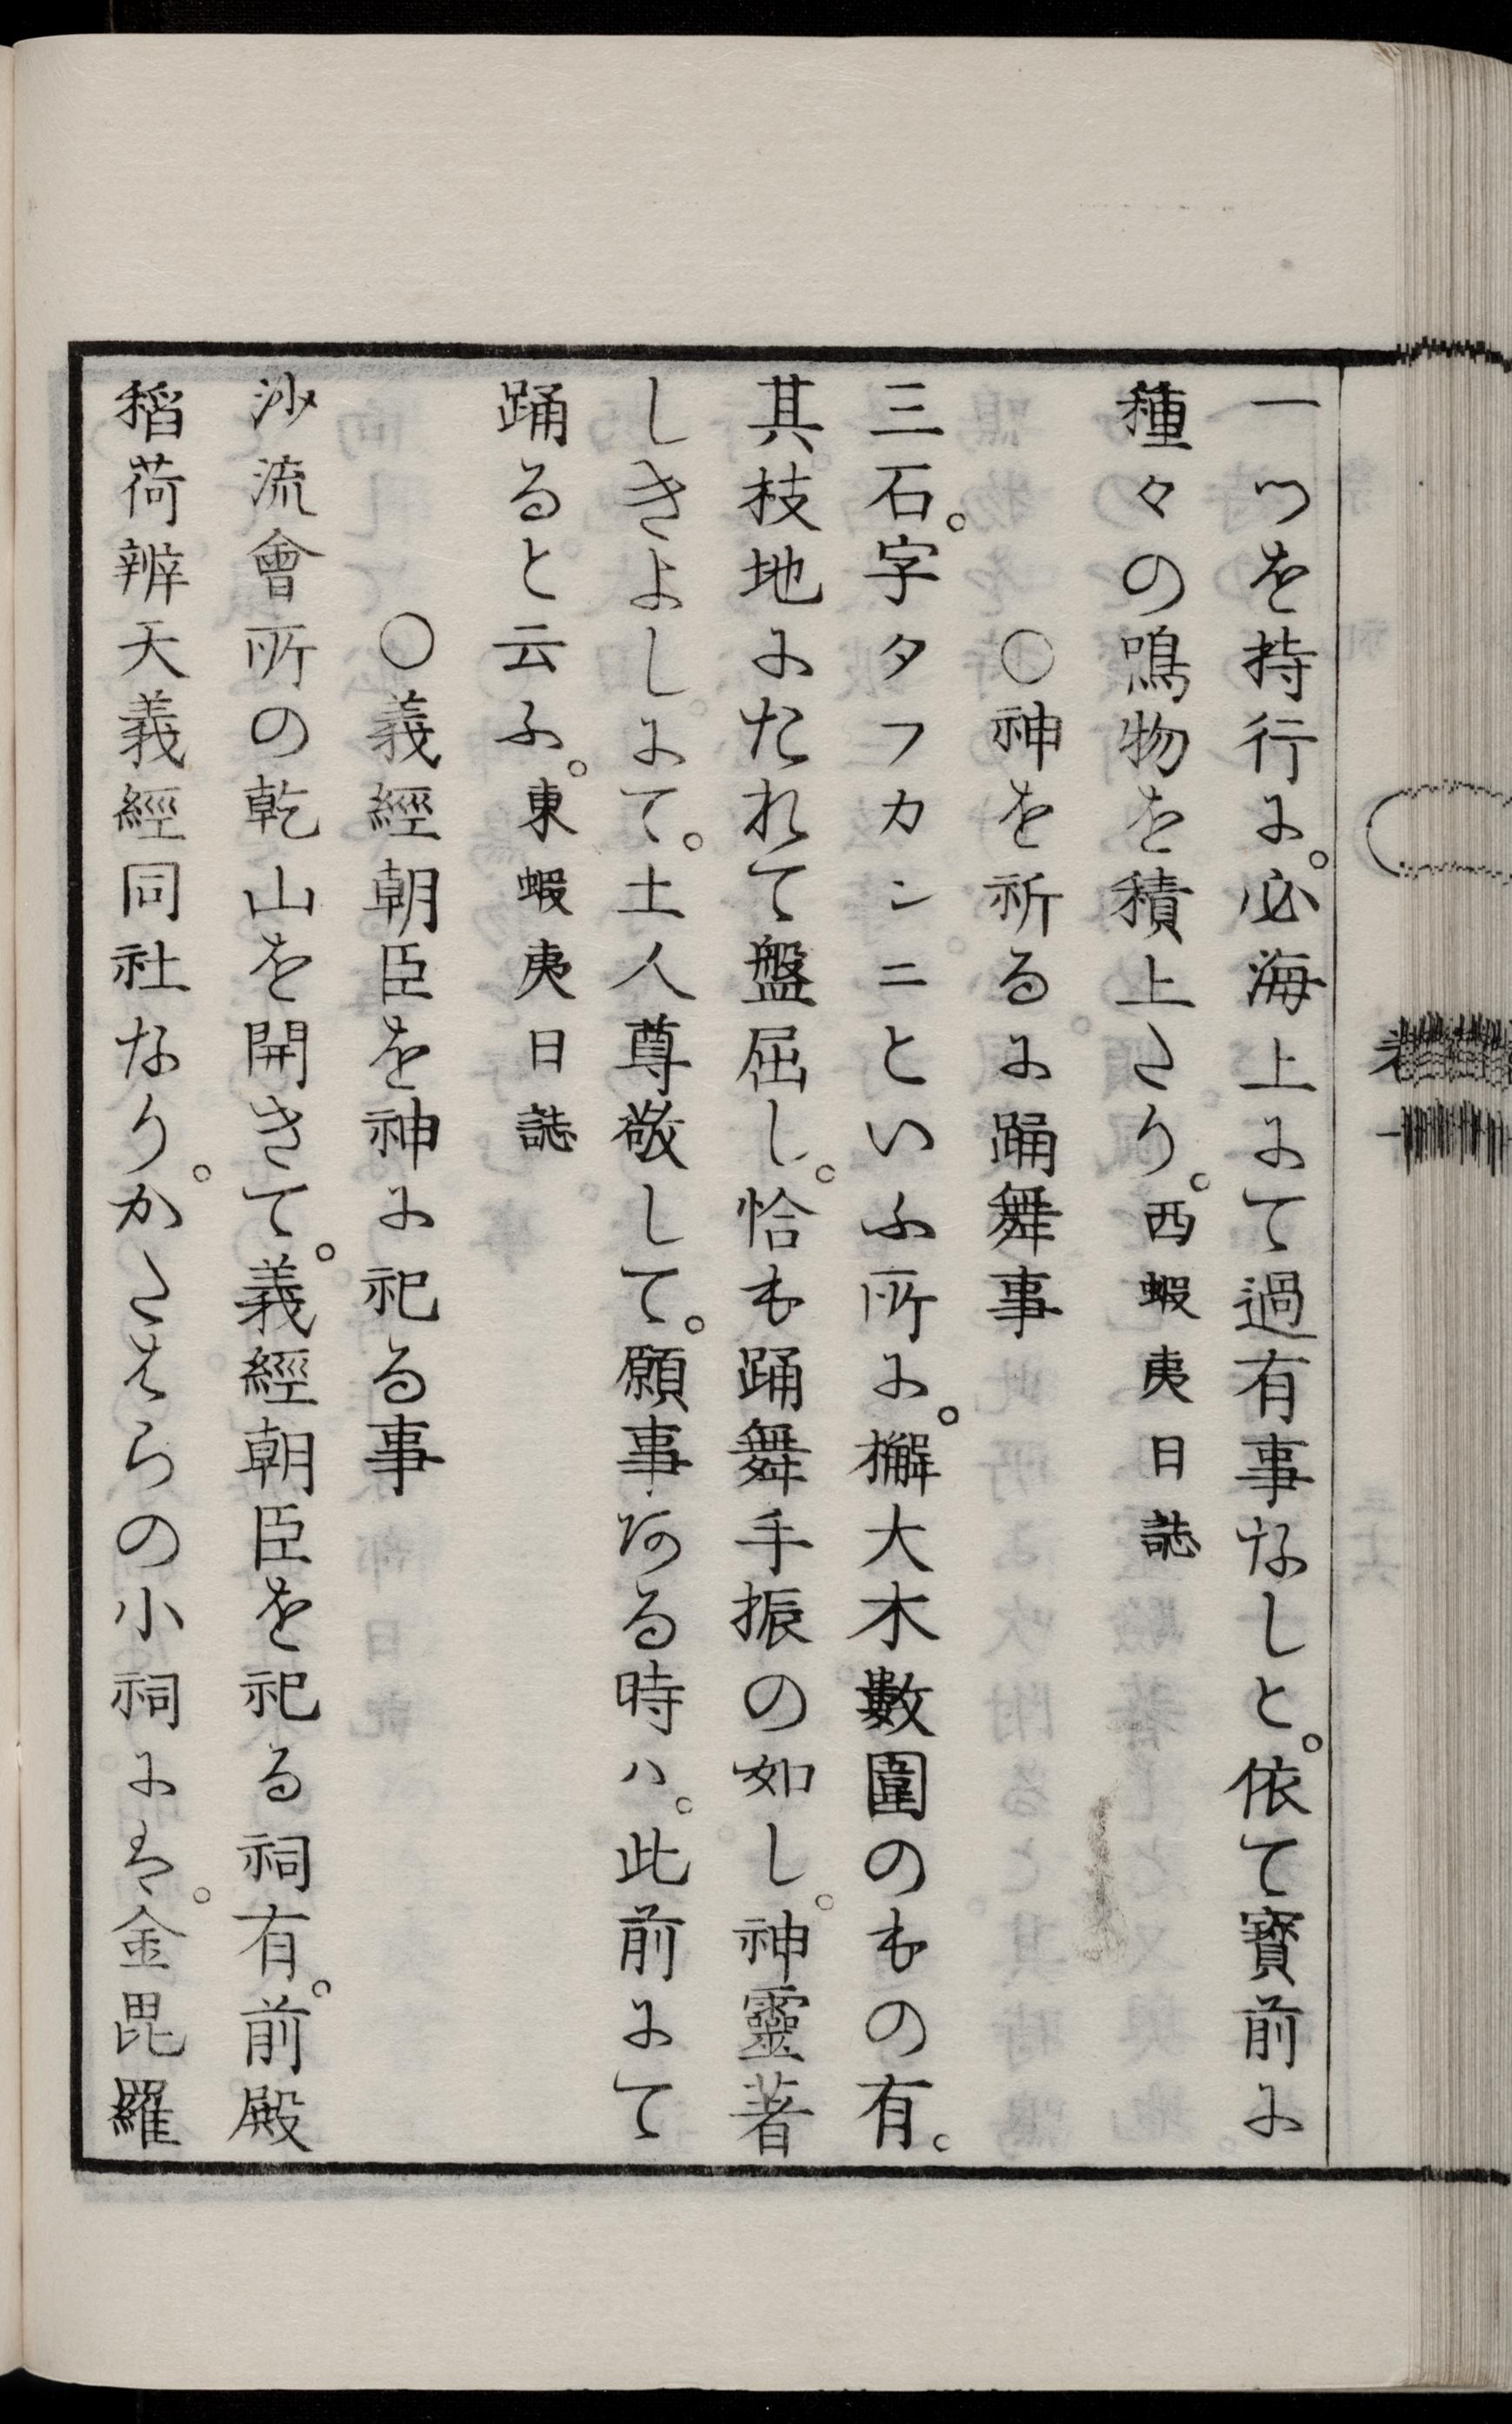 一つを持行に。必海上にて過有事なしと。依て寶前に
種々の鳴物を積上たり。西蝦夷日誌
〇神を祈るに踊舞事
三石。字タフカンニといふ所に。檞大木數圍のもの有。
其枝地にたれて盤屈し。恰も踊舞手振の如し。神靈著
しきよしにて。土人尊敬して。願事ある時ハ。此前にて
踊ると云ふ。東蝦夷日誌
〇義經朝臣を神に祀る事
沙流會所の乾山を開きて。義經朝臣を祀る祠有。前殿
稻荷辨天義經同社なり。かたはらの小祠には。金毘羅